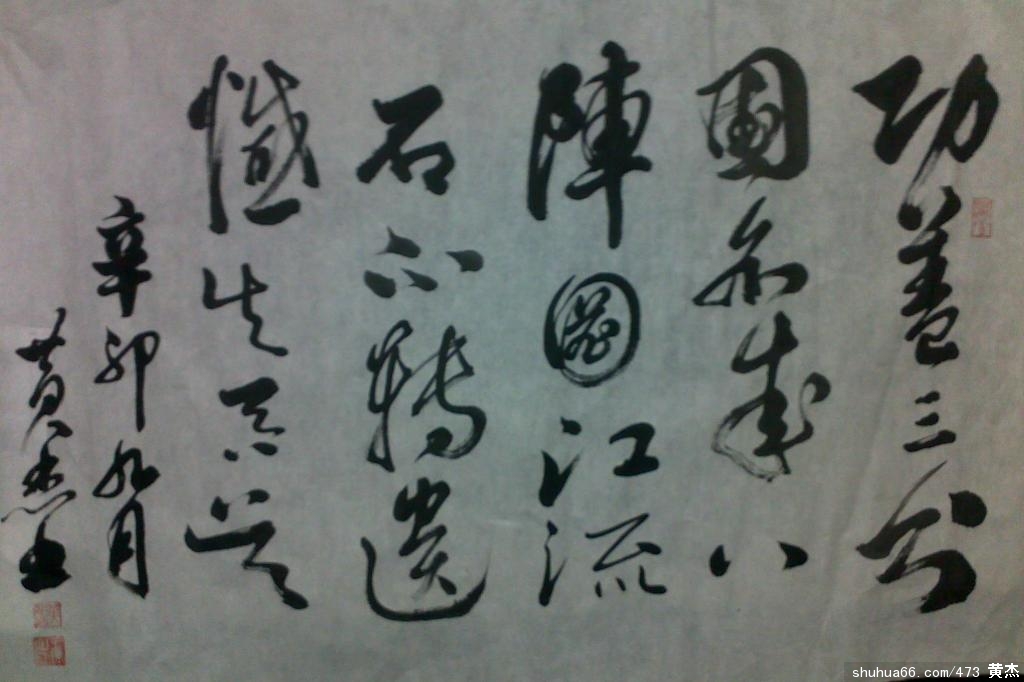 功盖三分
國名成八
陣圖江流
石不轉遺
憾失吞吴
辛卯九月
黄杰书
shuhua66.com/473 黄杰